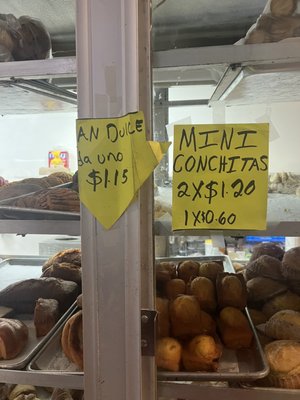 AN DULCE
da uno
$1.15
MINI
CONCHITAS
2X$1.20
1X$0.60